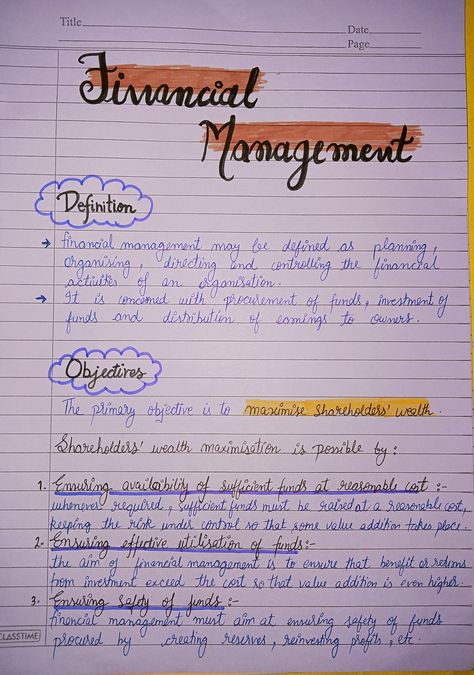 Title
Date
Page
Financial
Management
Definition
→ Financial management may be defined as planning,
organising, directing and controlling the financial
activities of an organisation.
→ It is concerned with procurement of funds, investment of
funds and distribution of earnings to owners.
Objectives
The primary objective is to maximise shareholders' wealth.
Shareholders' wealth maximisation is possible by :
1. Ensuring availability of sufficient funds at reasonable cost :-
whenever required, sufficient funds must be raised at a reasonable cost,
keeping the risk under control so that some value addition takes place.
2- Ensuring effective utilisation of funds:-
the aim of financial management is to ensure that benefit or returns
from investment exceed the cost so that value addition is even higher.
3. Ensuring Safety of funds :-
financial management must aim at ensuring safety of funds
procured by creating reserves, reinvesting profits, etc.
CLASSTIME